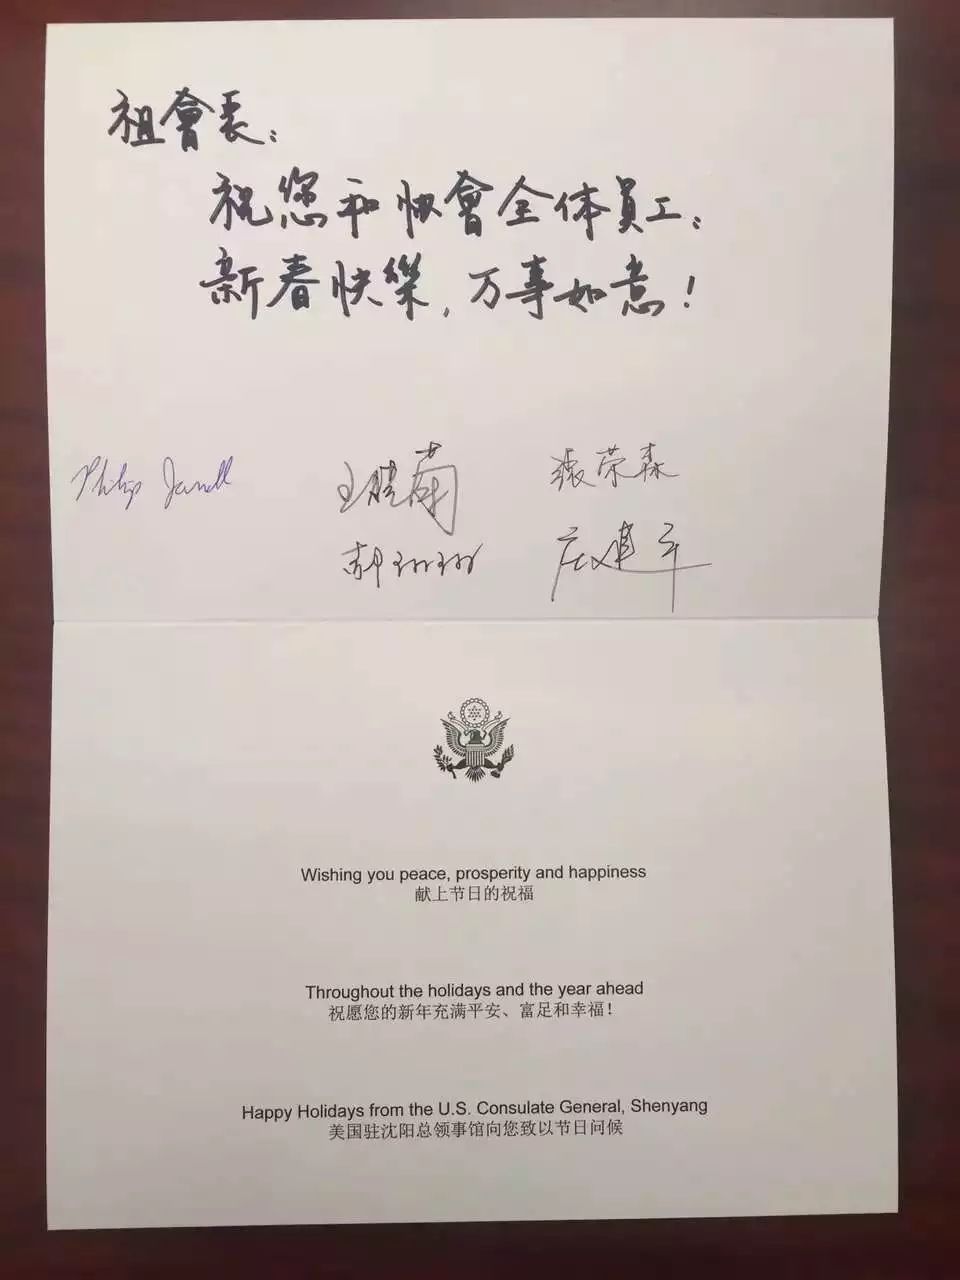 祖會長：
祝您和协會全体員工：
新春快樂，万事如意！
Philip
张荣森
庄建平
Wishing you peace, prosperity and happiness
献上节日的祝福
Throughout the holidays and the year ahead
祝愿您的新年充满平安、富足和幸福！
Happy Holidays from the U.S. Consulate General, Shenyang
美国驻沈阳总领事馆向您致以节日问候